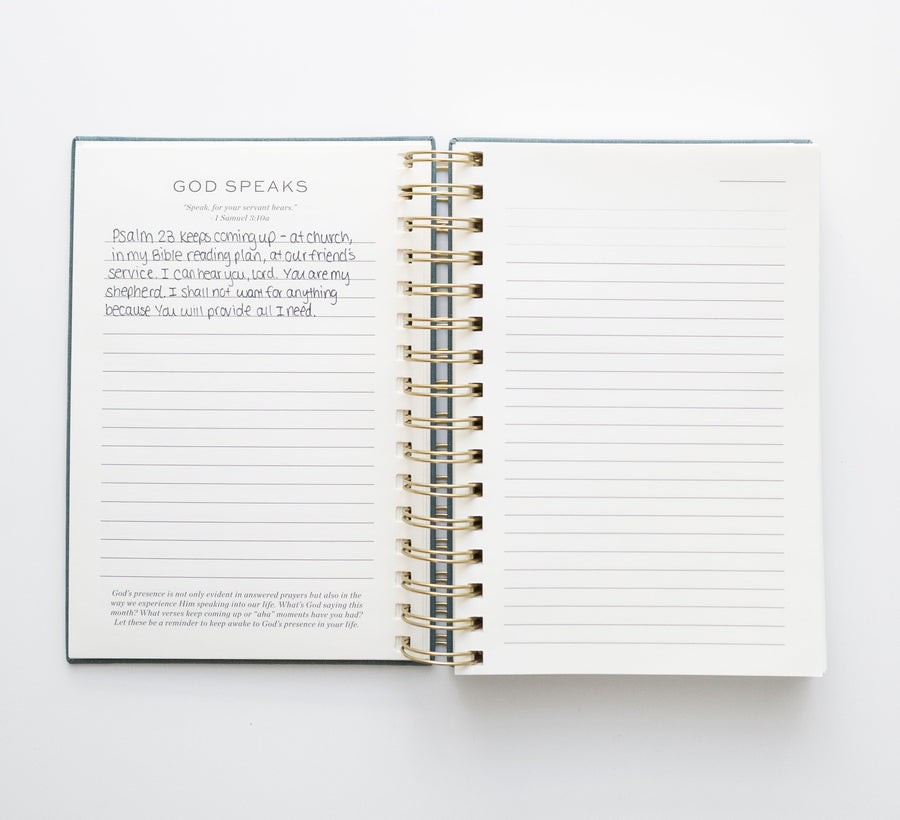 GOD SPEAKS
"Speak, for your servant hears."
- 1 Samuel 3:10a
Psalm 23 keeps coming up - at church,
in my Bible reading plan, at our friend's
service. I can hear you, Lord. You are my
shepherd. I shall not want for anything
because You will provide all I need.
God's presence is not only evident in answered prayers but also in the
way we experience Him speaking into our life. What's God saying this
month? What verses keep coming up or "aha" moments have you had?
Let these be a reminder to keep awake to God's presence in your life.